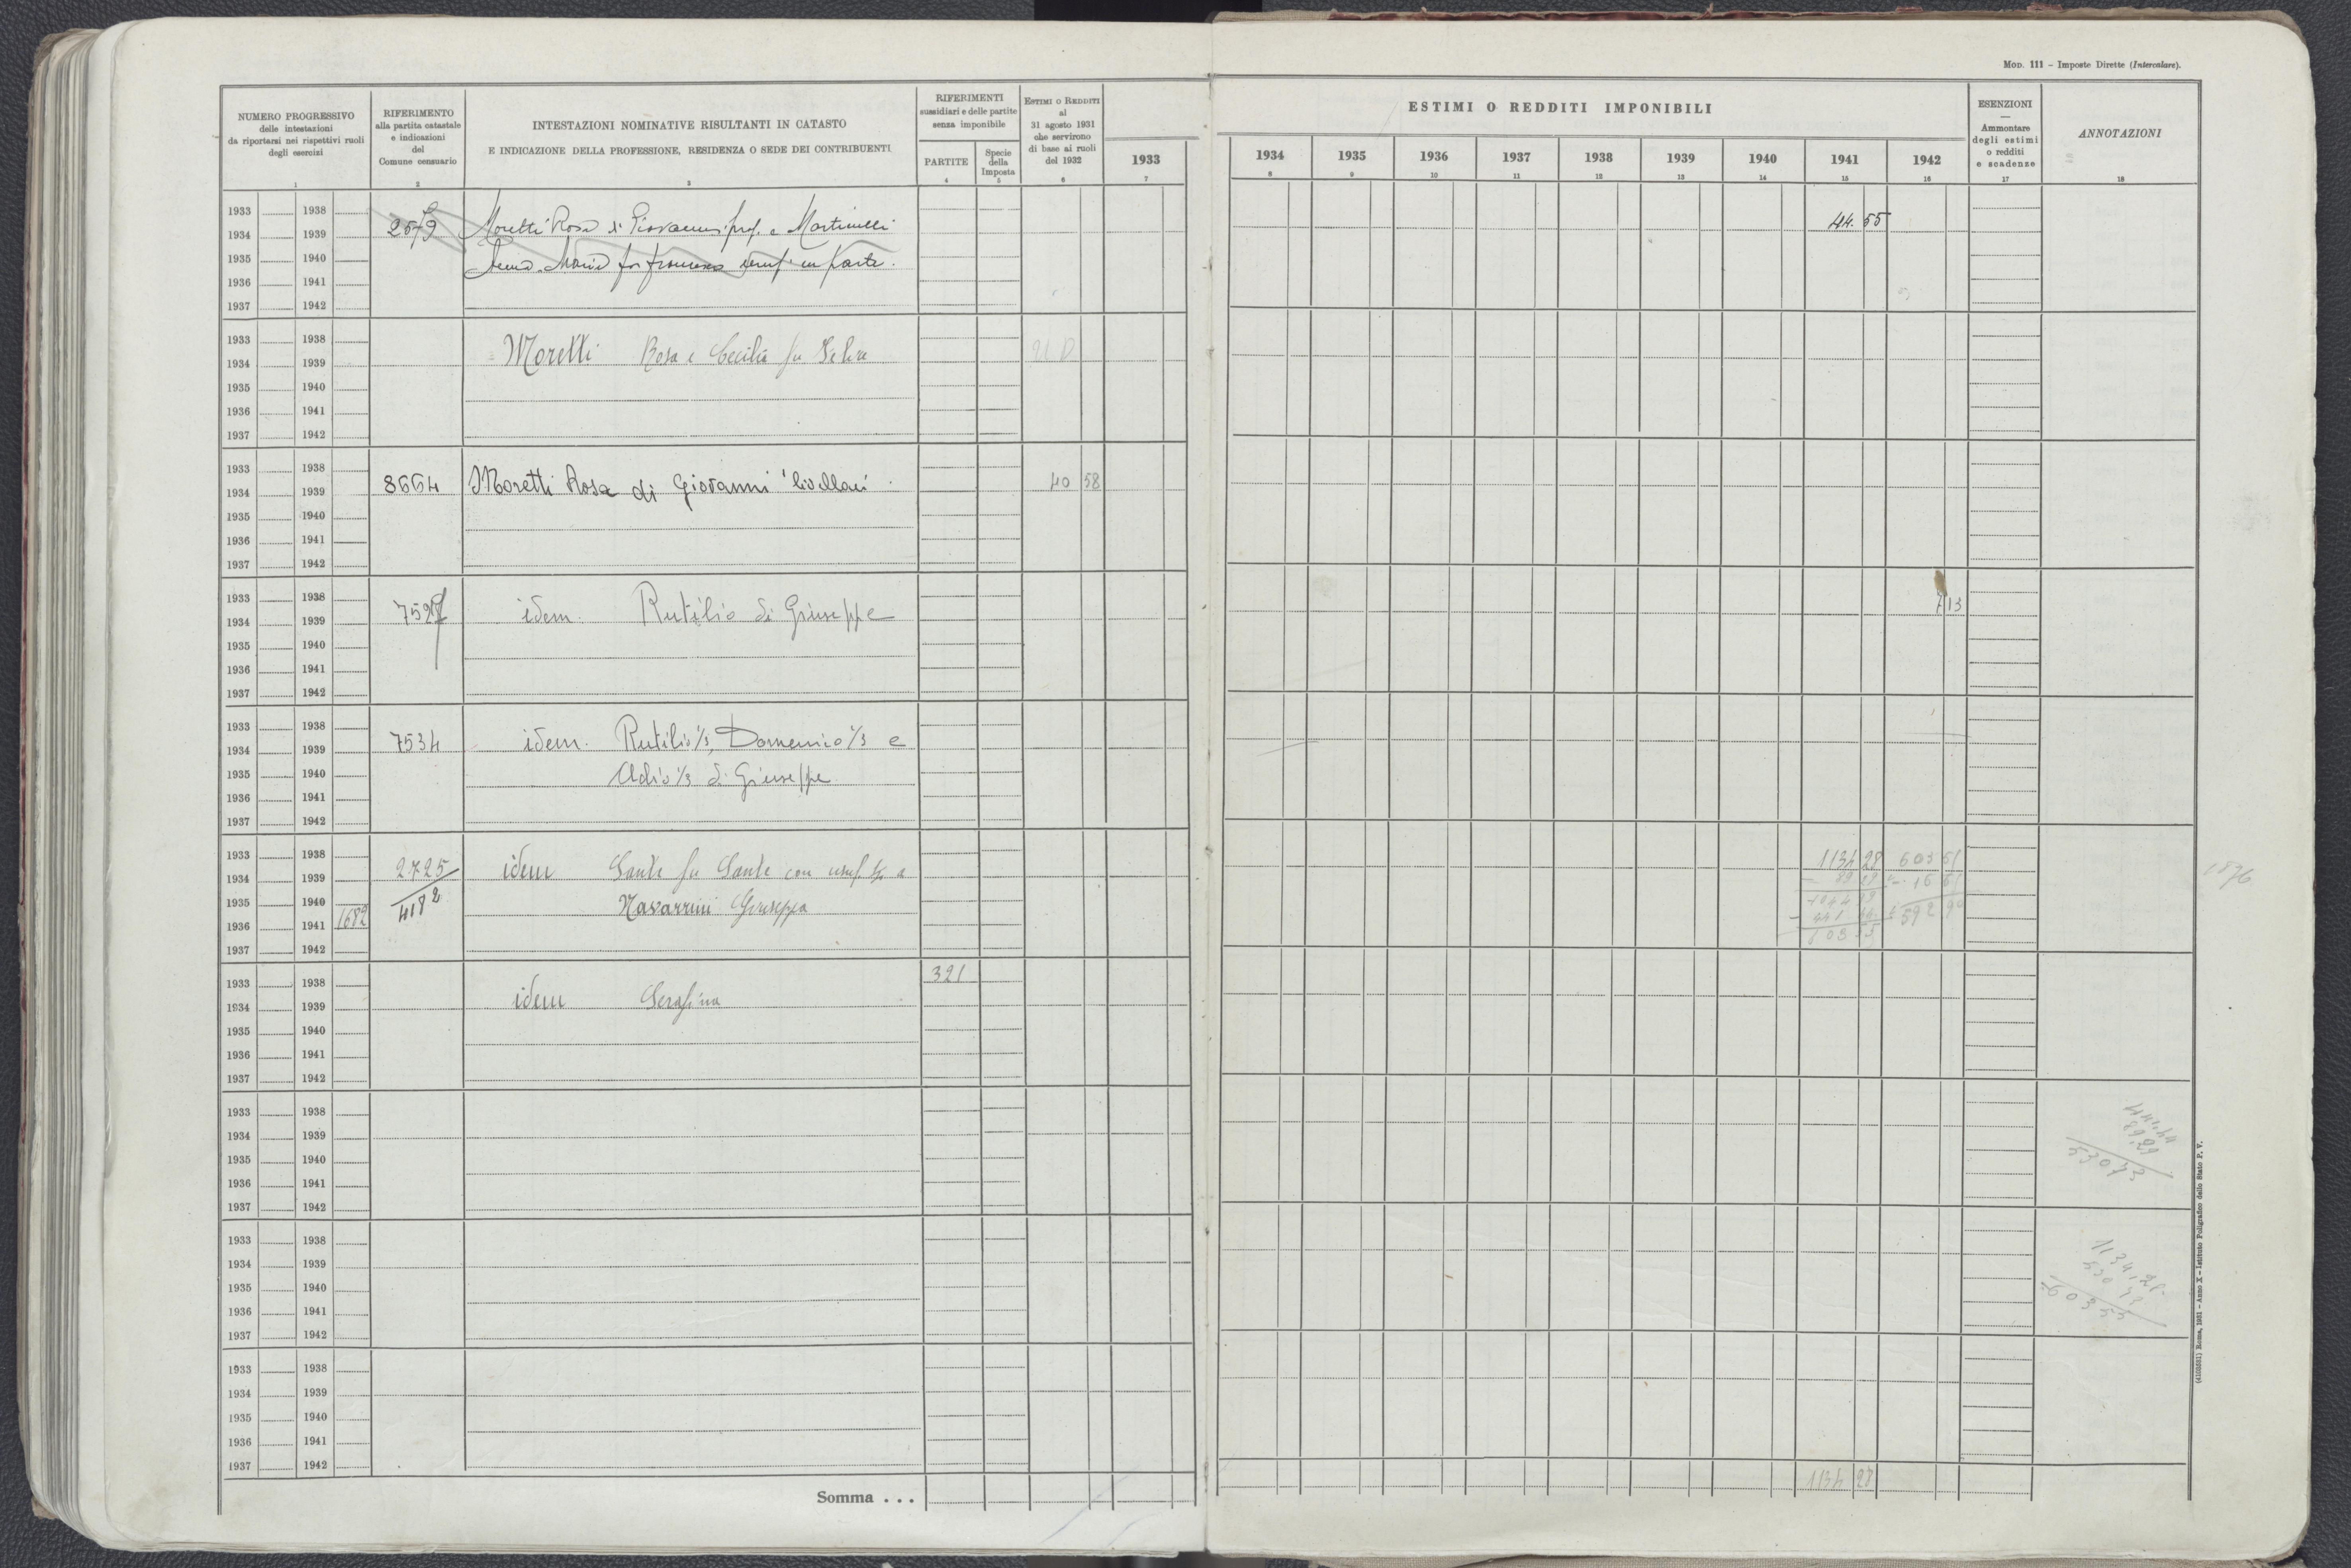 MOD. 111 – Imposte Dirette (Intercalare).
NUMERO PROGRESSIVO
delle intestazioni
da riportarsi nei rispettivi ruoli
degli esercizi
1
RIFERIMENTO
alla partita catastale
e indicazioni
del
Comune censuario
2
INTESTAZIONI NOMINATIVE RISULTANTI IN CATASTO
E INDICAZIONE DELLA PROFESSIONE, RESIDENZA O SEDE DEI CONTRIBUENTI
3
RIFERIMENTI
sussidiari e delle partite
senza imponibile
PARTITE
4
Specie
della
Imposta
5
ESTIMI O REDDITI
al
31 agosto 1931
che servirono
di base ai ruoli
del 1932
6
1933
7
ESTIMI O REDDITI IMPONIBILI
1934 1935 1936 1937 1938 1939 1940 1941 1942
8 9 10 11 12 13 14 15 16
ESENZIONI
—
Ammontare
degli estimi
o redditi
e scadenze
17
ANNOTAZIONI
18
1933 1938
1934 1939 Moretti Rosa di Giovanni prop. e Martinelli 44.55
1935 1940 Maria fu Francesco usuf. in parte.
1936 1941
1937 1942
1933 1938
1934 1939 Moretti Rosa e Cecilia fu
1935 1940
1936 1941
1937 1942
1933 1938
1934 1939 8664 Moretti Rosa di Giovanni livellari 40 58
1935 1940
1936 1941
1937 1942
1933 1938
1934 1939 idem. Rutilio di Giuseppe 13
1935 1940
1936 1941
1937 1942
1933 1938
1934 1939 7534 idem. Rutilio 1/3, Domenico 1/3 e
1935 1940 1/3 di Giuseppe
1936 1941
1937 1942
1933 1938 2725 1134 28 603 51
1934 1939 idem Sante fu Sante con usuf. a
1935 1940 4182 Navarrini Giuseppa
1936 1941 1682 441 44 592 90
1937 1942
1933 1938 321
1934 1939 idem Serafina
1935 1940
1936 1941
1937 1942
1933 1938 441,44
1934 1939 89,29
1935 1940 530 73
1936 1941
1937 1942
1933 1938 1134,28
1934 1939 530 73
1935 1940 603 55
1936 1941
1937 1942
1933 1938
1934 1939
1935 1940
1936 1941
1937 1942
Somma . . . 1134 28
(4103851) Roma, 1931 – Anno X – Istituto Poligrafico dello Stato P. V.